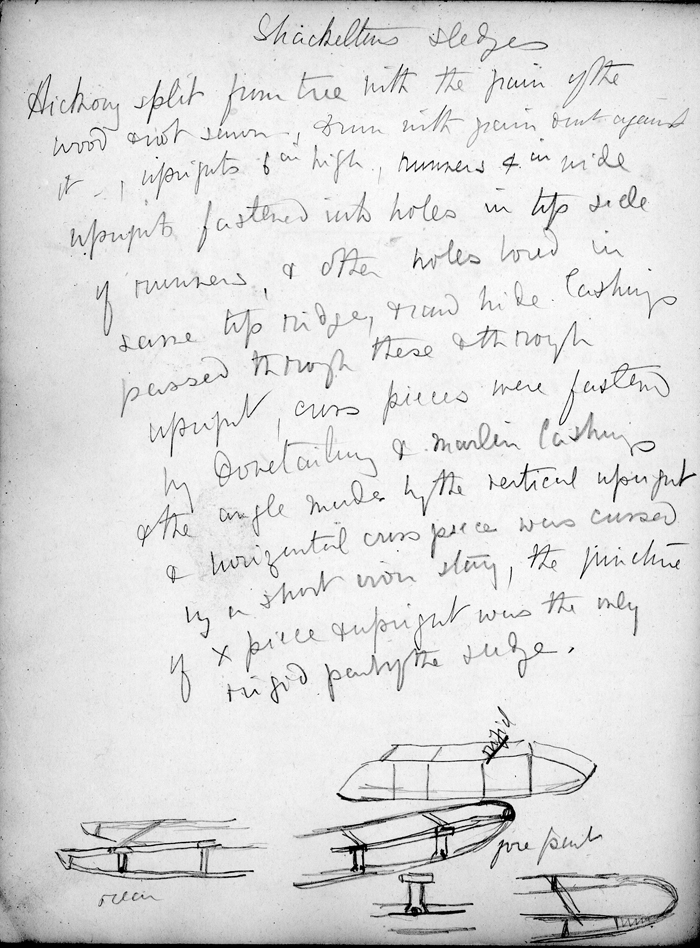 Shackeltons sledges
Hickory split from tree with the grain of the
wood & not sawn, & run with grain & not against
it -, uprights 6 in high, runners 4 in wide
uprights fastened into holes in top side
of runners, & other holes bored in
same top ridge, & raw hide lashings
passed through these & through
upright, cross pieces were fastened
by dovetailing & marlin lashings
& the angle made by the vertical upright
& horizontal cross piece was crossed
by a short iron stay, the juncture
of x piece & upright was the only
rigid part of the sledge.
rigid
fore part
rear